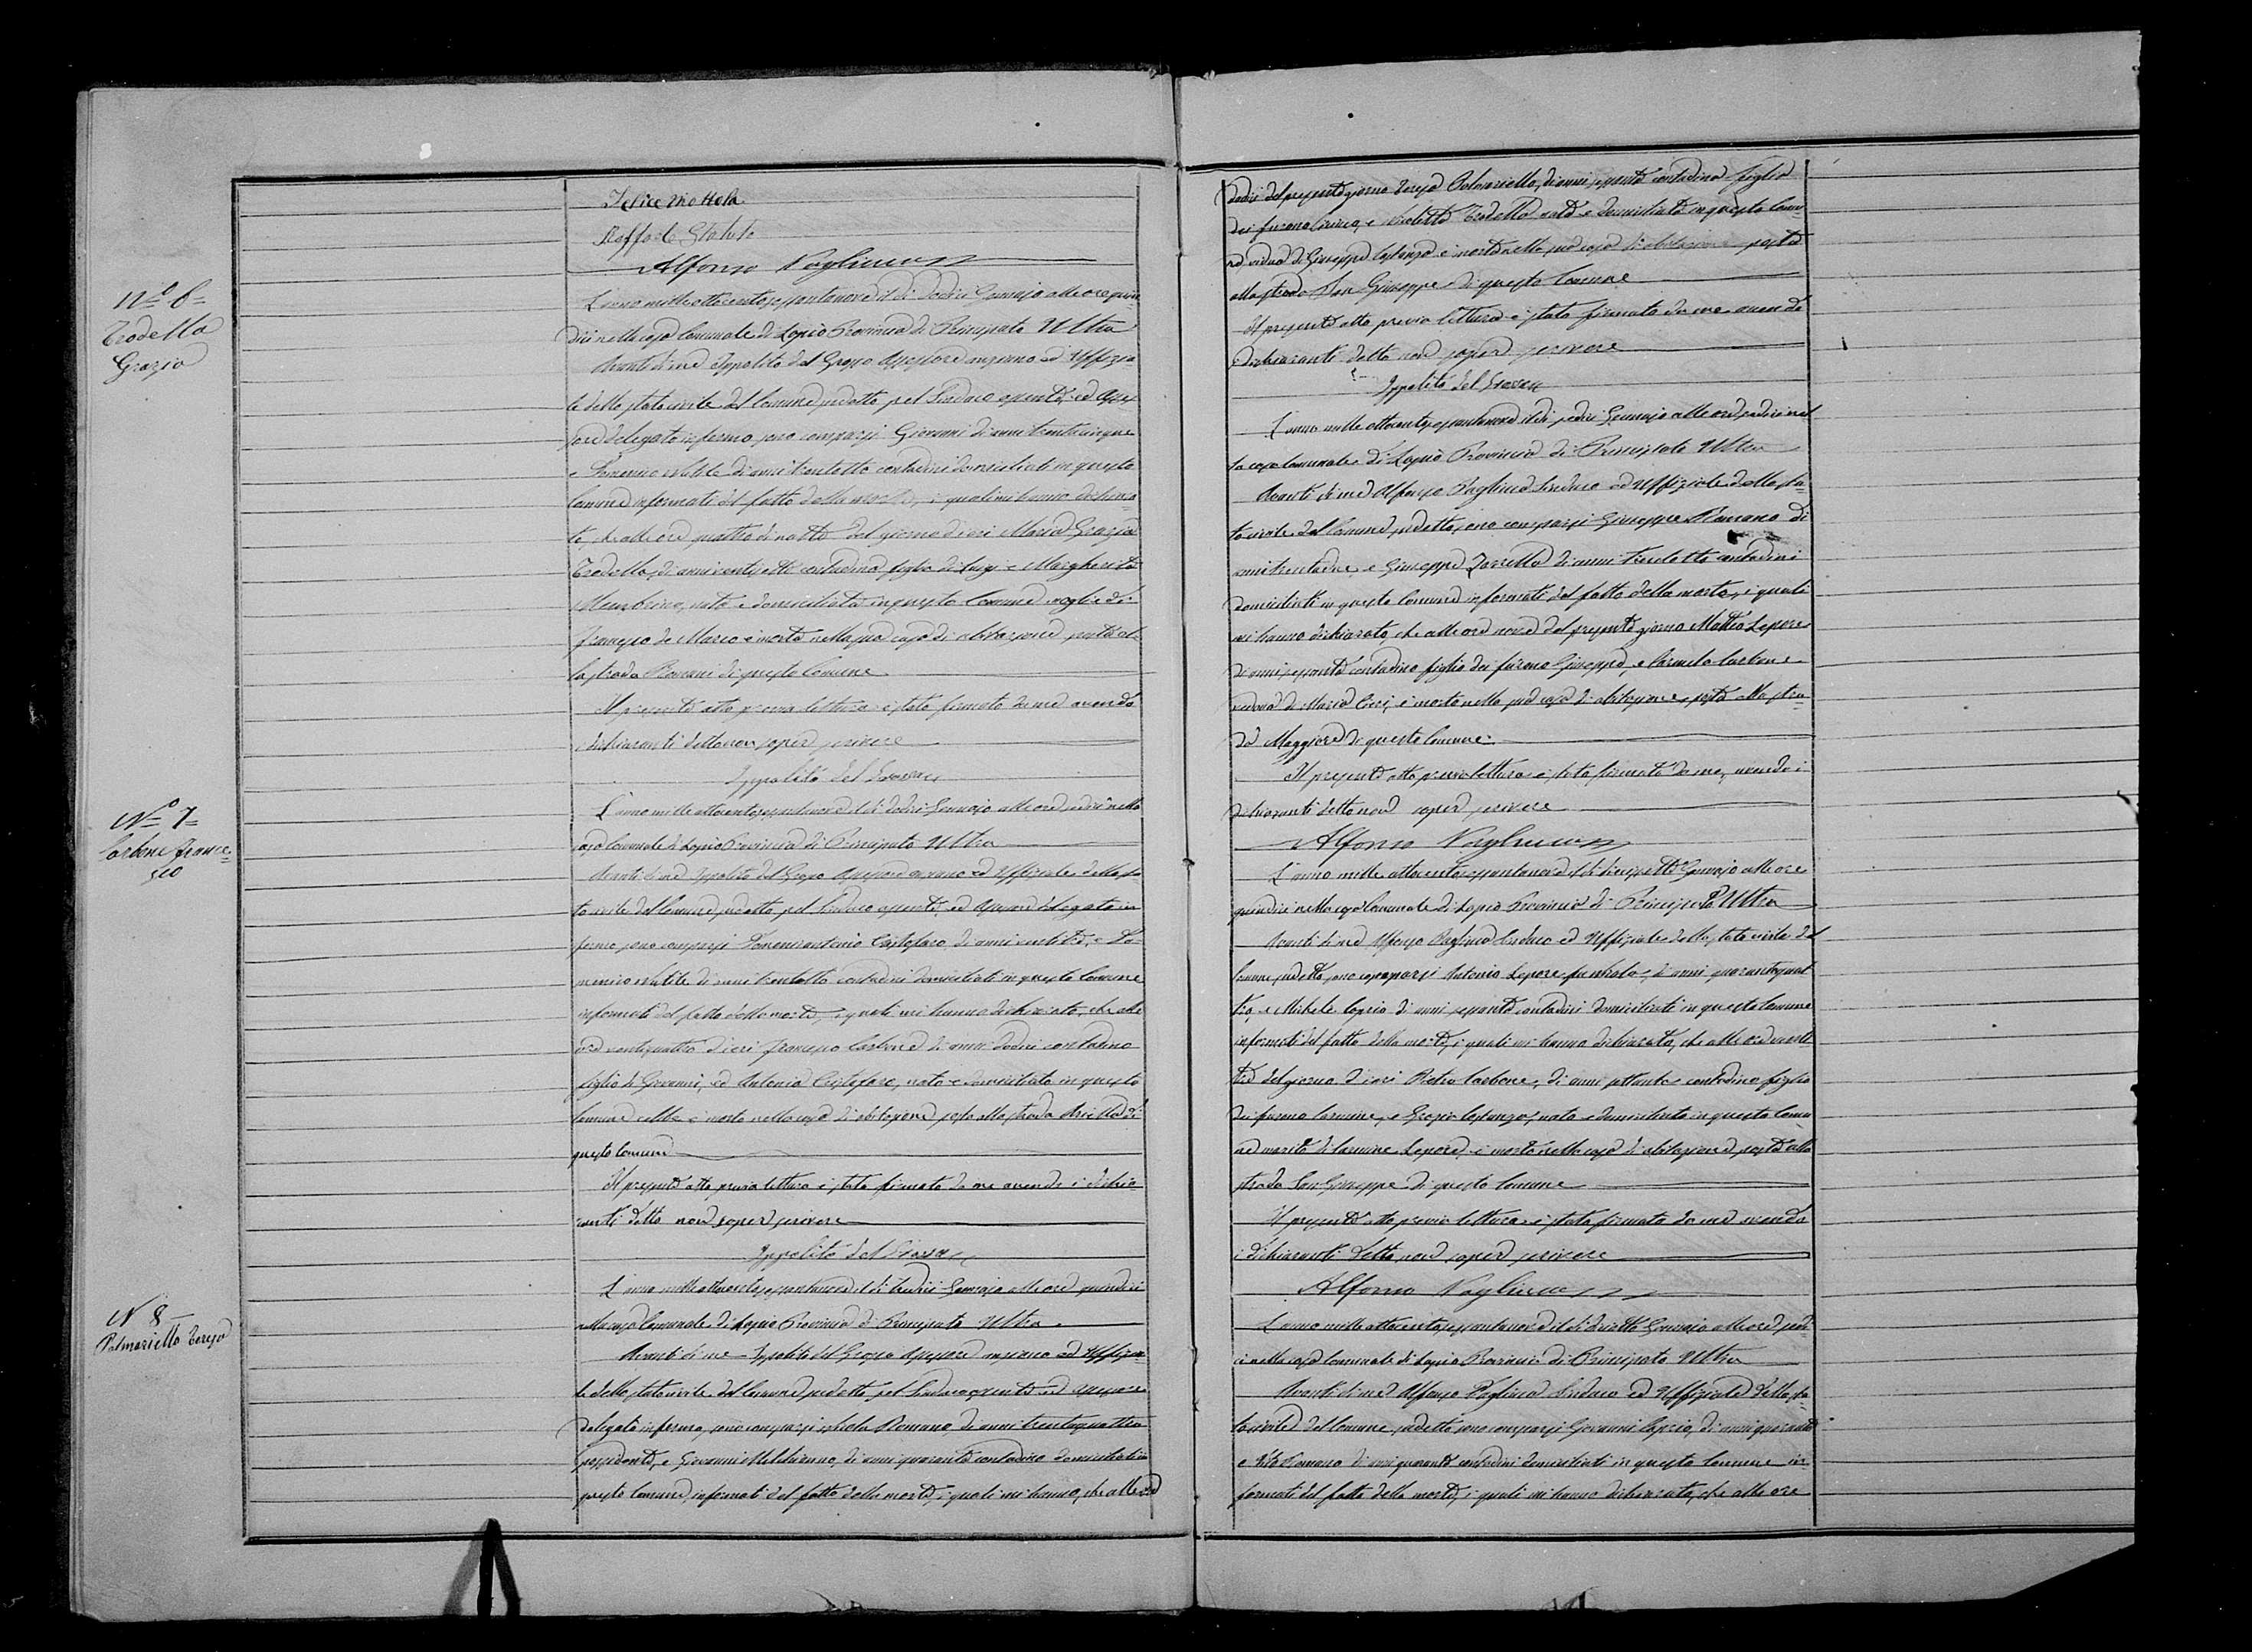 Felice Mottola
Alfonso Vagliuca
Nº 6=
Trodella
Grazia
L'anno mille ottocento sessantanove il dì dodici Gennajo alle ore quin
dici nella casa Comunale di Lapio Provincia di Principato Ultra
Avanti di me Ippolito del Grosso Assessore anziano ed Uffizia-
le dello stato civile del Comune sudetto pel Sindaco assente, ed Asses
sore delegato infermo sono comparsi Giovanni di anni trentacinque
e Domenico di anni trentotto contadini domiciliati in questo
Comune informati del fatto della morte, i quali mi hanno dichiara
to, che alle ore quattro di notte del giorno di ieri Maria Grazia
Trodella, di anni ventisette contadina figlia di Luigi e Margherita
nata e domiciliata in questo Comune moglie di
Francesco de Marco è morta nella sua casa di abitazione posta al-
la strada Romani di questo Comune
Il presente atto previa lettura è stato firmato da me avendo
i dichiaranti detto non saper scrivere
Ippolito del Grosso
Nº 7=
Carbone France=
sco
L'anno mille ottocento sessantanove il dì dodici Gennajo alle ore sedici nella
casa Comunale di Lapio Provincia di Principato Ultra
Avanti di me Ippolito del Grosso Assessore anziano ed Uffiziale dello sta
to civile del Comune sudetto pel Sindaco assente, ed Assessore delegato in
fermo sono comparsi Domenicantonio Cristofaro di anni e Do-
menico di anni trentotto contadini domiciliati in questo Comune
informati del fatto della morte, i quali mi hanno dichiarato, che alle
ore ventiquattro di ieri Francesco Carbone di anni dodici contadino
figlio di Giovanni, ed Antonia Cristofaro, nato e domiciliato in questo
Comune celibe è morto nella casa di abitazione posta alla strada di
questo Comune
Il presente atto previa lettura è stato firmato da me avendo i dichia
ranti detto non saper scrivere
Ippolito del Grosso
N 8
Palmariello Teresa
L'anno mille ottocento sessantanove il dì tredici Gennajo alle ore quindici
nella casa Comunale di Lapio Provincia di Principato Ultra
Avanti di me Ippolito del Grosso Assessore anziano ed Uffizia-
le dello stato civile del Comune sudetto pel Sindaco assente ed Assessore
delegato infermo, sono comparsi Nicola Romano, di anni trentaquattro
possidente, e Giovanni di anni quaranta contadino domiciliati in
questo Comune, informati del fatto della morte, i quali mi hanno, che alle ore
dodici del presente giorno Teresa Palmariello, di anni sessanta contadina figlia
dei furono e Trodella nata e domiciliata in questo Comu-
ne vedova di Giuseppe Costanzo è morta nella sua casa di abitazione posta
alla strada San Giuseppe di questo Comune
Il presente atto previa lettura è stato firmato da me avendo
i dichiaranti detto non saper scrivere
Ippolito del Grosso
L'anno mille ottocento sessantanove il dì sedici Gennajo alle ore sedici nel
la casa comunale di Lapio Provincia di Principato Ultra
Avanti di me Alfonso Vagliuca Sindaco ed Uffiziale dello sta-
to civile del Comune sudetto, sono comparsi Giuseppe Romano di
anni trentadue, e Giuseppe di anni trentotto contadini
domiciliati in questo Comune informati del fatto della morte, i quali
mi hanno dichiarato che alle ore nove del presente giorno Mattia Lepore
di anni sessanta contadino figlio dei furono Giuseppe, e Carmela Carbone
vedovo di Maria è morto nella sua casa di abitazione posta alla stra-
da Maggiore di questo Comune
Il presente atto previa lettura è stato firmato da me, avendo i
dichiaranti detto non saper scrivere
Alfonso Vagliuca
L'anno mille ottocento sessantanove il dì diecisette Gennajo alle ore
quindici nella casa Comunale di Lapio Provincia di Principato Ultra
Avanti di me Alfonso Vagliuca Sindaco ed Uffiziale dello stato civile del
Comune sudetto, sono comparsi Antonio Lepore fu di anni quarantaquat
tro, e Michele Caprio di anni sessanta contadini domiciliati in questo Comune
informati del fatto della morte, i quali mi hanno dichiarato, che alle ore venti
tre del giorno di ieri Pietro Carbone, di anni settanta contadino figlio
dei furono Carmine, e Grazia Costanzo, nato e domiciliato in questo Comu
ne marito di Carmina Lepore, è morto nella casa di abitazione posta alla
strada San Giuseppe di questo Comune
Il presente atto previa lettura è stato firmato da me avendo
i dichiaranti detto non saper scrivere
Alfonso Vagliuca
L'anno mille ottocento sessantanove il dì diciotto Gennajo alle ore sedi
ci nella casa Comunale di Lapio Provincia di Principato Ultra
Avanti di me Alfonso Vagliuca Sindaco ed Uffiziale dello sta-
to civile del Comune sudetto sono comparsi Giovanni Caprio, di anni quaranta
e Vito Romano di anni quaranta contadini domiciliati in questo Comune in-
formati del fatto della morte, i quali mi hanno dichiarato, che alle ore